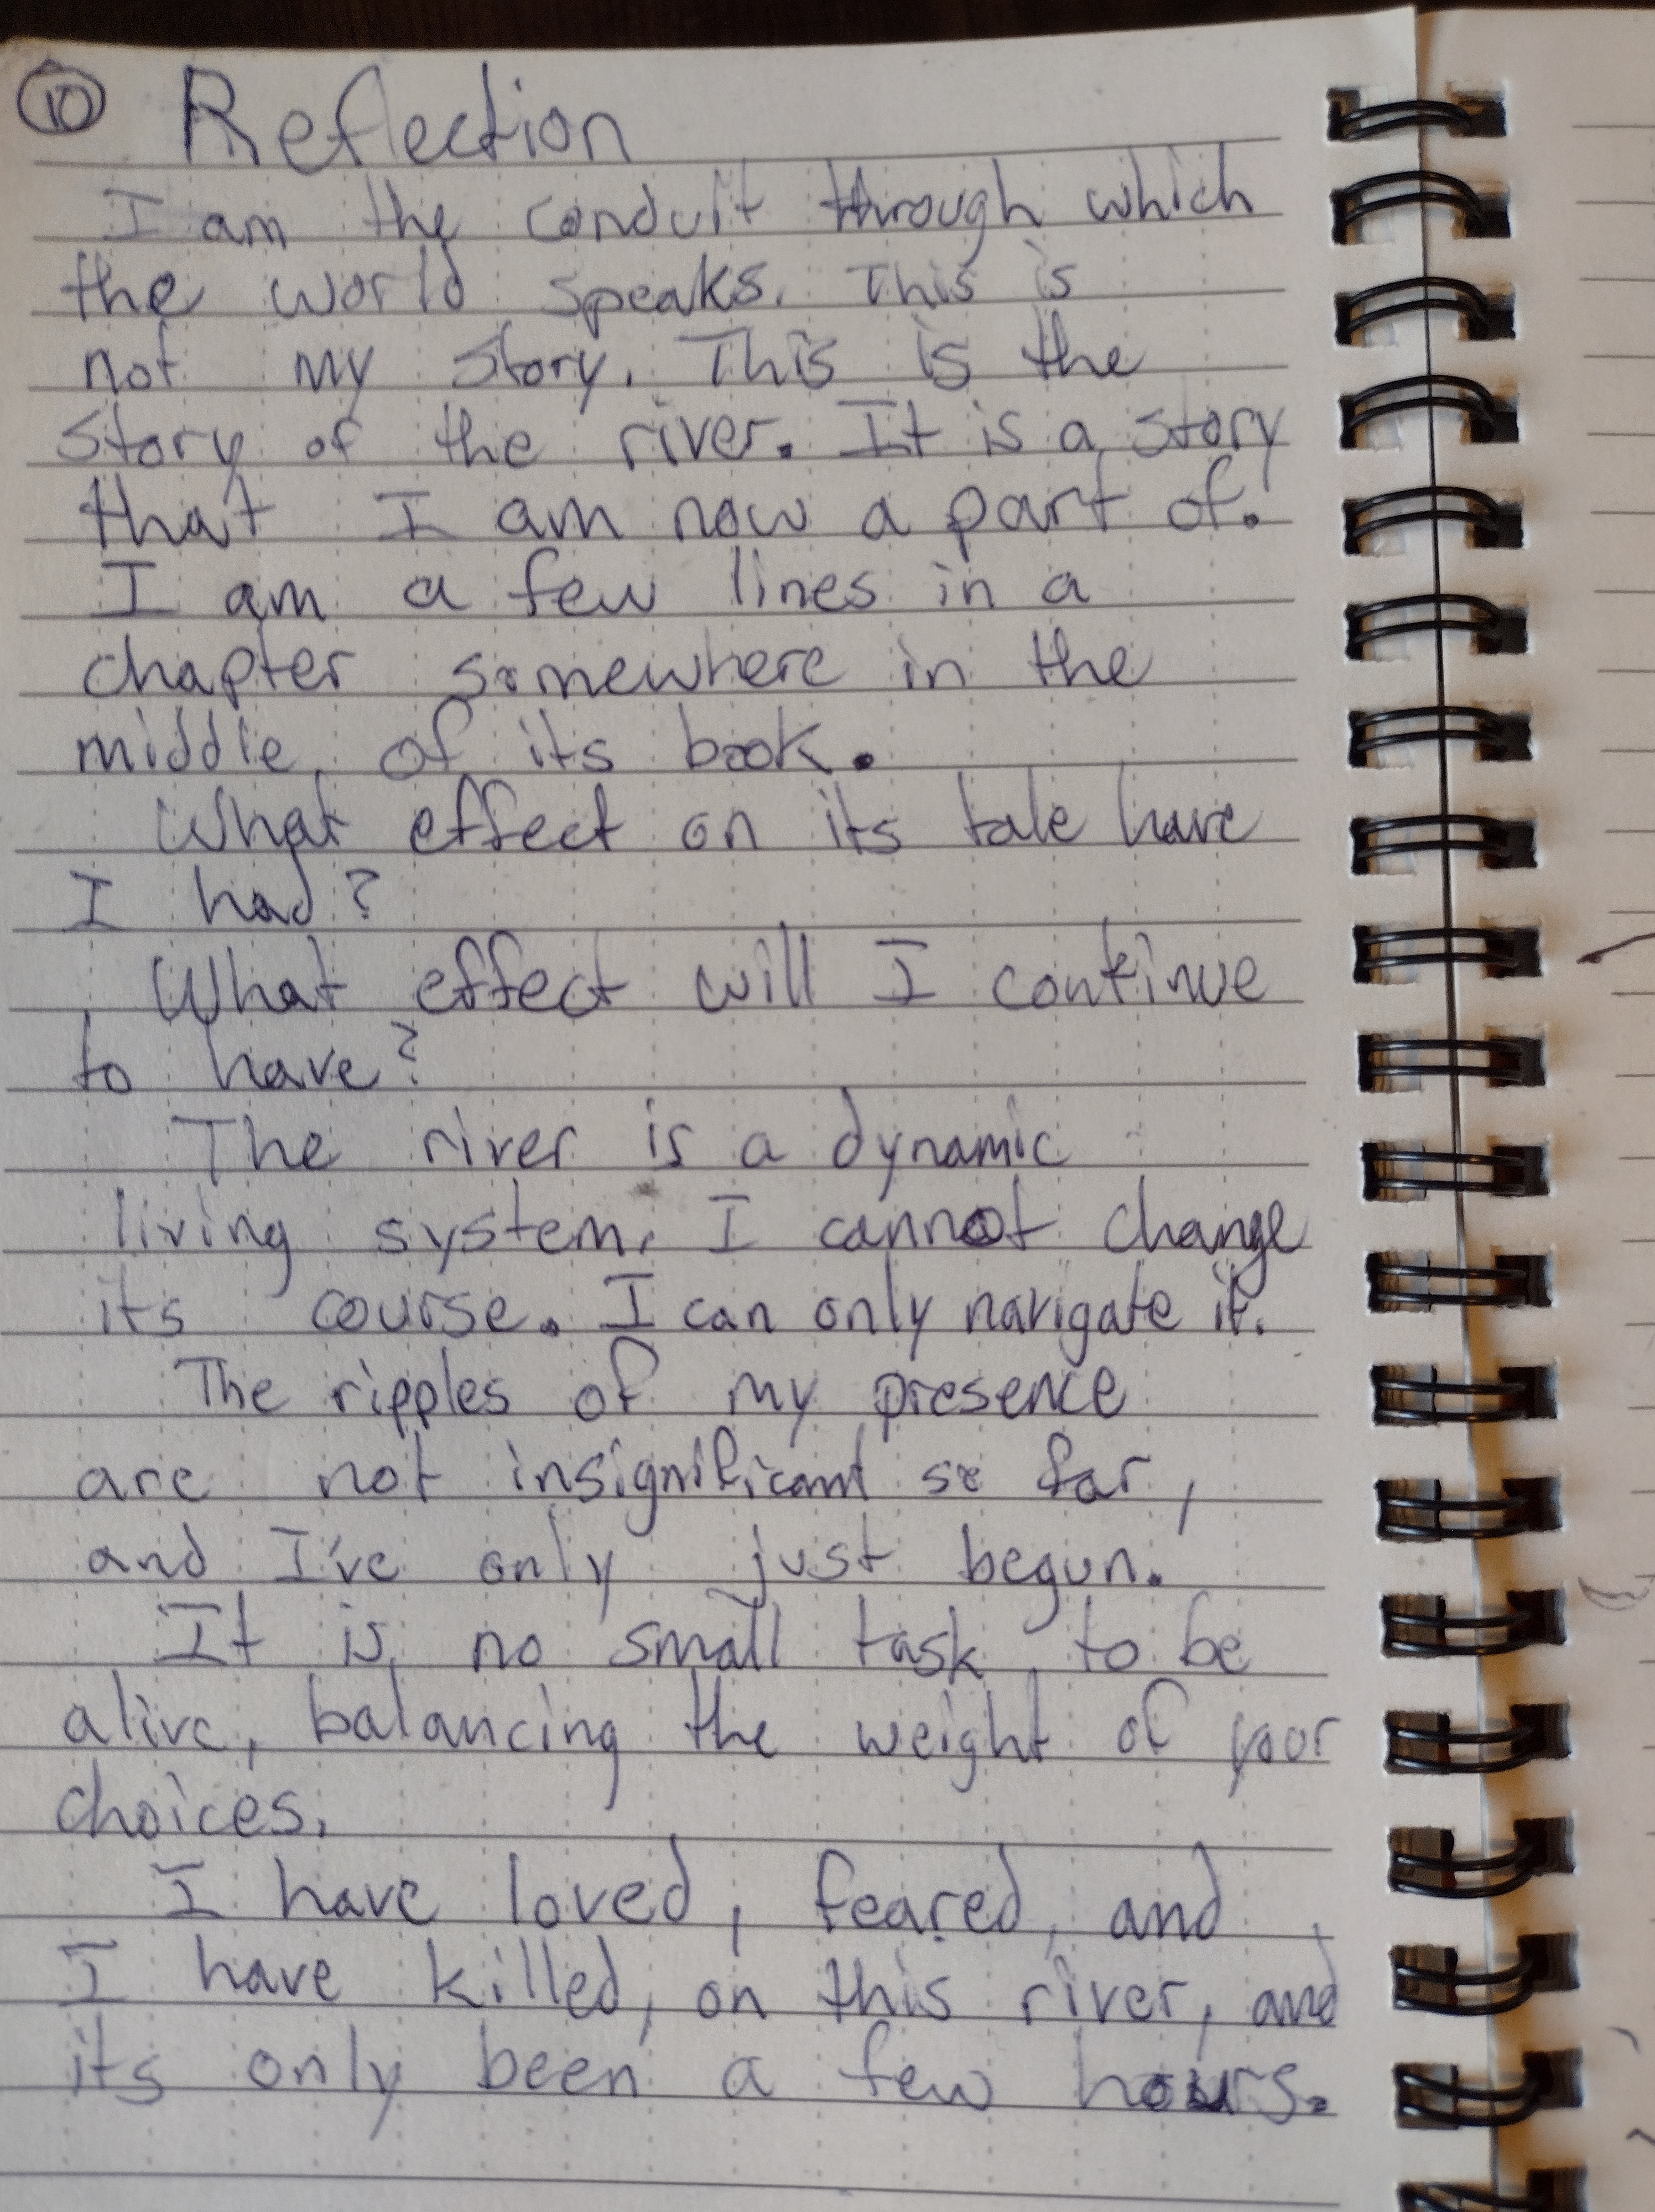 10 Reflection
I am the conduit through which
the world speaks. This is
not my story. This is the
story of the river. It is a story
that I am now a part of.
I am a few lines in a
chapter somewhere in the
middle of its book.
What effect on its tale have
I had?
What effect will I continue
to have?
The river is a dynamic
living system. I cannot change
its course. I can only navigate it.
The ripples of my presence
are not insignificant so far,
and I've only just begun.
It is no small task to be
alive, balancing the weight of your
choices.
I have loved, feared, and
I have killed, on this river, and
its only been a few hours.